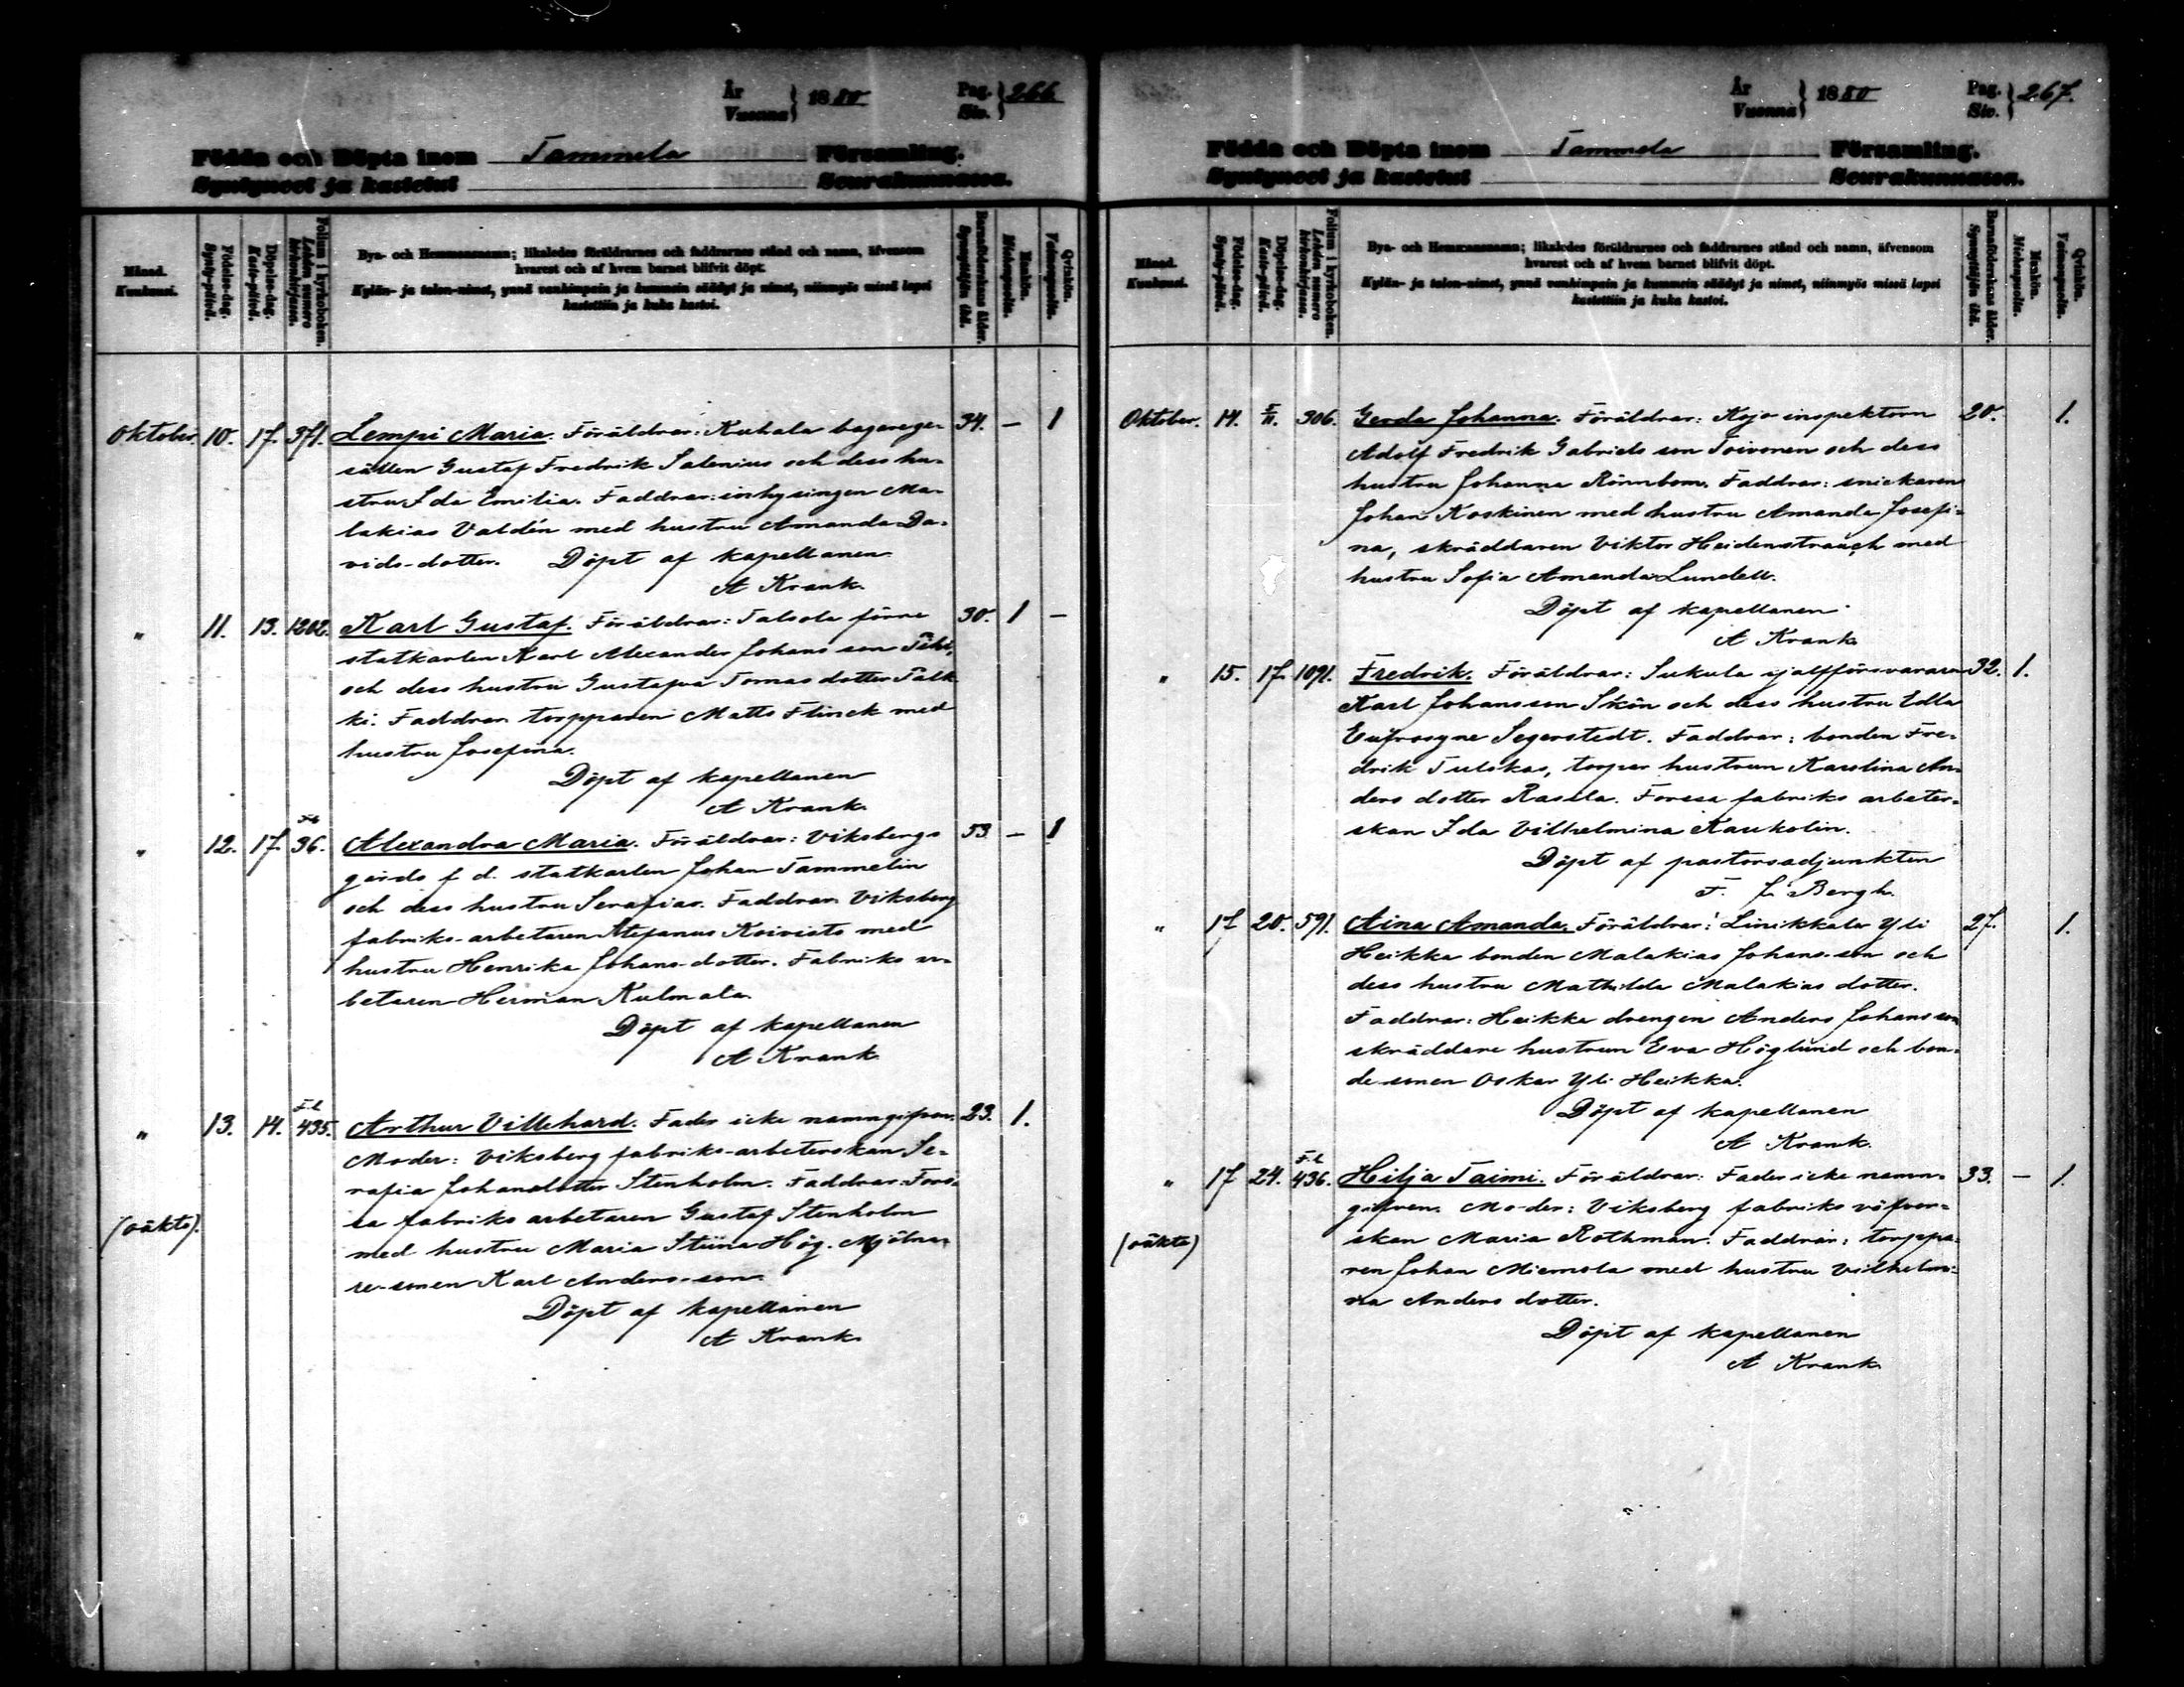 År
Vuonna } 1880 Pag.
Siv. } 266
Födda och Döpta inom Tammela Församling.
Syntyneet ja kastetut Seurakunnassa.
Månad.
Kuukausi.
Födelse-dag.
Synty-päivä.
Döpelse-dag.
Kaste-päivä.
Folium i kyrkoboken.
Lehden numero kirkonkirjassa.
Bya- och Hemmansnamn; likaledes föräldrarnes och faddrarnes stånd och namn, äfvensom
hvarest och af hvem barnet blifvit döpt.
Kylän- ja talon-nimet, ynnä vanhimpain ja kummein säädyt ja nimet, niinmyös missä lapsi
kastettiin ja kuka kastoi.
Barnföderskans ålder.
Synnyttäjän ikä.
Mankön.
Miehenpuolia.
Qvinkön.
Vaimonpuolia.
Oktober. 10. 17. 371. Lempi Maria. Föräldrar: Kuhala bagarege- 34. — 1
sällen Gustaf Fredrik Salenius och dess hu-
stru Ida Emilia. Faddrar: inhysingen Ma-
lakias Valdén med hustru Amanda Da-
vids-dotter. Döpt af kapellanen
A Krank.
" 11. 13. 1202. Karl Gustaf. Föräldrar: Talsola förre 30. 1 —
statkarlen Karl Alexander Johans son
och dess hustru Gustafva Tomas dotter Talk
ki. Faddrar torpparen Matts Flinck med
hustru Josefina.
Döpt af kapellanen
A Krank.
" 12. 17. 36. Alexandra Maria. Föräldrar: Viksbergs 53. — 1
gårds f d. statkarlen Johan Tammelin
och dess hustru Serafia. Faddrar Viksberg
fabriks-arbetaren Stefanus Koivisto med
hustru Henrika Johans-dotter. Fabriks ar-
betaren Herman Kulmala.
Döpt af kapellanen
A Krank
" 13. 14. F.l 435. Arthur Villehard. Fader icke namngifven. 23. 1.
Moder: Viksberg fabriks-arbeterskan Se-
rafia Johansdotter Stenholm. Faddrar: Fors-
(oäkta). sa fabriks arbetaren Gustaf Stenholm
med hustru Maria Stiina Hög. Mjölna-
re-sonen Karl Anders-son.
Döpt af kapellanen
A Krank
År
Vuonna } 1880 Pag.
Siv. } 267.
Födda och Döpta inom Tammela Församling.
Syntyneet ja kastetut Seurakunnassa.
Månad.
Kuukausi.
Födelse-dag.
Synty-päivä.
Döpelse-dag.
Kaste-päivä.
Folium i kyrkoboken.
Lehden numero kirkonkirjassa.
Bya- och Hemmansnamn; likaledes föräldrarnes och faddrarnes stånd och namn, äfvensom
hvarest och af hvem barnet blifvit döpt.
Kylän- ja talon-nimet, ynnä vanhimpain ja kummein säädyt ja nimet, niinmyös missä lapsi
kastettiin ja kuka kastoi.
Barnföderskans ålder.
Synnyttäjän ikä.
Mankön.
Miehenpuolia.
Qvinkön.
Vaimonpuolia.
Oktober. 14. 306. Gerda Johanna. Föräldrar: Kojo inspektorn 20. 1.
Adolf Fredrik Gabriels son Toivonen och dess
hustru Johanna Rönnbom. Faddrar: snickaren
Johan Koskinen med hustru Amanda Josefi-
na, skräddaren Viktor Heidenstrauch med
hustru Sofia Amanda Lundell.
Döpt af kapellanen
A Krank
" 15. 17. 1091. Fredrik. Föräldrar: Sukula sjelfförsvararen 32. 1.
Karl Johansson Skön och dess hustru Edla
Eufrosyne Segerstedt. Faddrar: bonden Fre-
drik Tulskas, torpar hustrun Karolina An-
ders dotter Rasila. Forssa fabriks arbeter-
skan Ida Vilhelmina Kaukolin.
Döpt af pastorsadjunkten
F. J. Bergh.
" 17 20. 591. Aina Amanda. Föräldrar: Linikkala Yli 27. 1.
Heikka bonden Malakias Johans-son och
dess hustru Mathilda Malakias dotter.
Faddrar: Heikka drengen Anders Johans son
skräddare hustrun Eva Höglund och bon-
de-sonen Oskar Yli Heikka.
Döpt af kapellanen
A Krank.
" 17 24. F.l 436. Hilja Taimi. Föräldrar: Fader icke namn- 33. — 1.
gifven. Moder: Viksberg fabriks väfver-
(oäkta) skan Maria Rothman. Faddrar: torppa-
ren Johan Miemola med hustru Vilhelmi-
na Anders dotter.
Döpt af kapellanen
A Krank